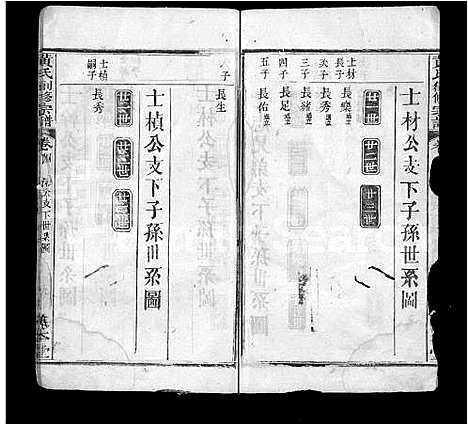 士材公支下子孫世系圖
廿一世
廿二世
廿三世
士材
長子
長樂
次子
長秀
三子
長豬
四子
長足
五子
長佑
六子
長生
士楨公支下子孫世系圖
廿一世
廿二世
廿三世
士楨
嗣子
長秀
黃氏創修宗譜
卷四
公支下世系圖